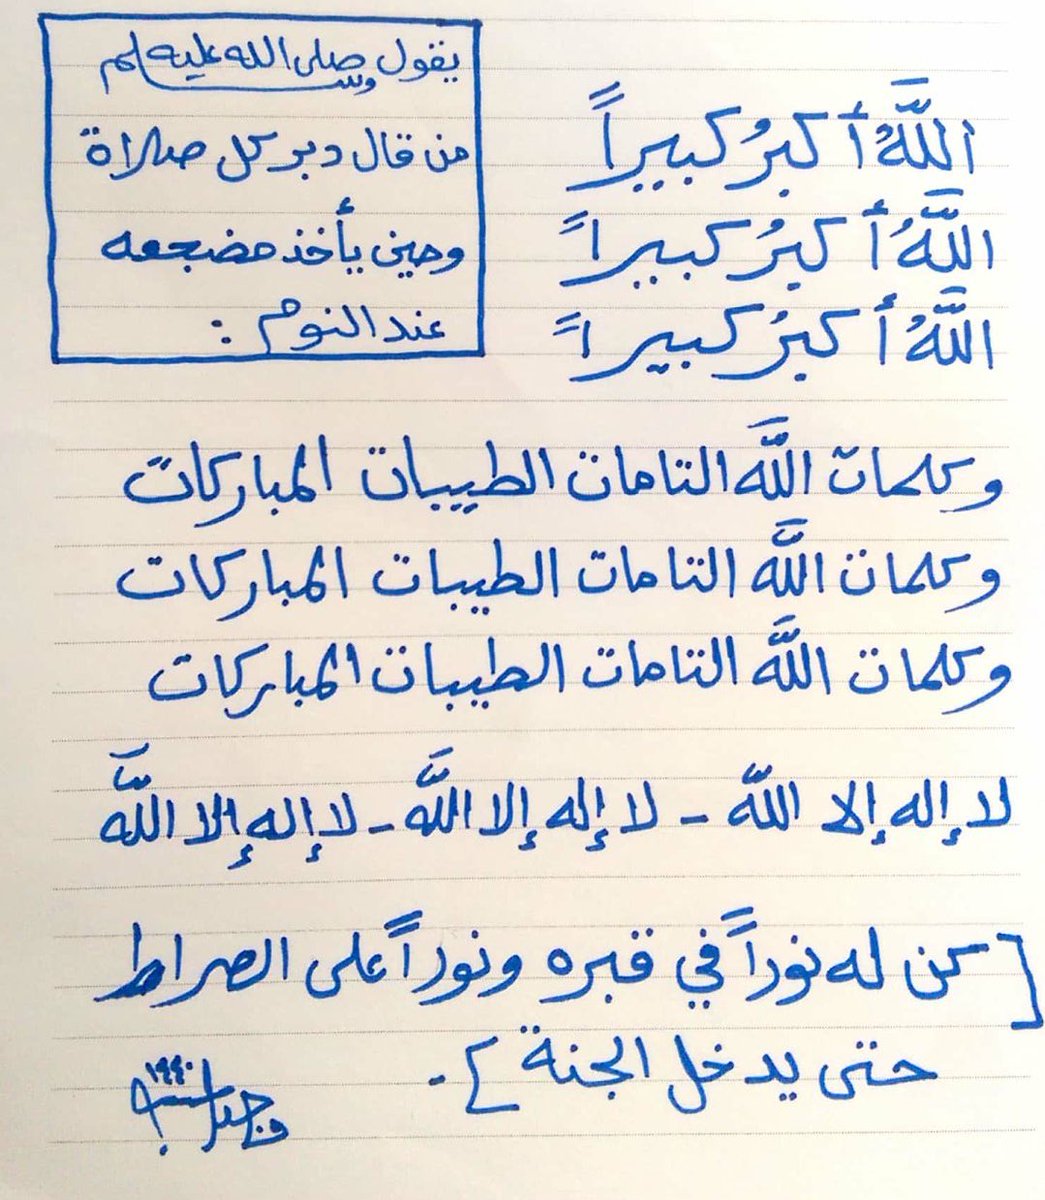 يقول صلى الله عليه وسلم
من قال دبر كل صلاة
وحين يأخذ مضجعه
عند النوم :
اللَّهُ أكبرُ كبيراً
اللَّهُ أكبرُ كبيراً
اللَّهُ أكبرُ كبيراً
وكلمات اللَّه التامات الطيبات المباركات
وكلمات اللَّه التامات الطيبات المباركات
وكلمات اللَّه التامات الطيبات المباركات
لا إله إلا اللَّه - لا إله إلا اللَّه - لا إله إلا اللَّه
[ كن له نوراً في قبره ونوراً على الصراط
حتى يدخل الجنة ] .
١٩٩٠